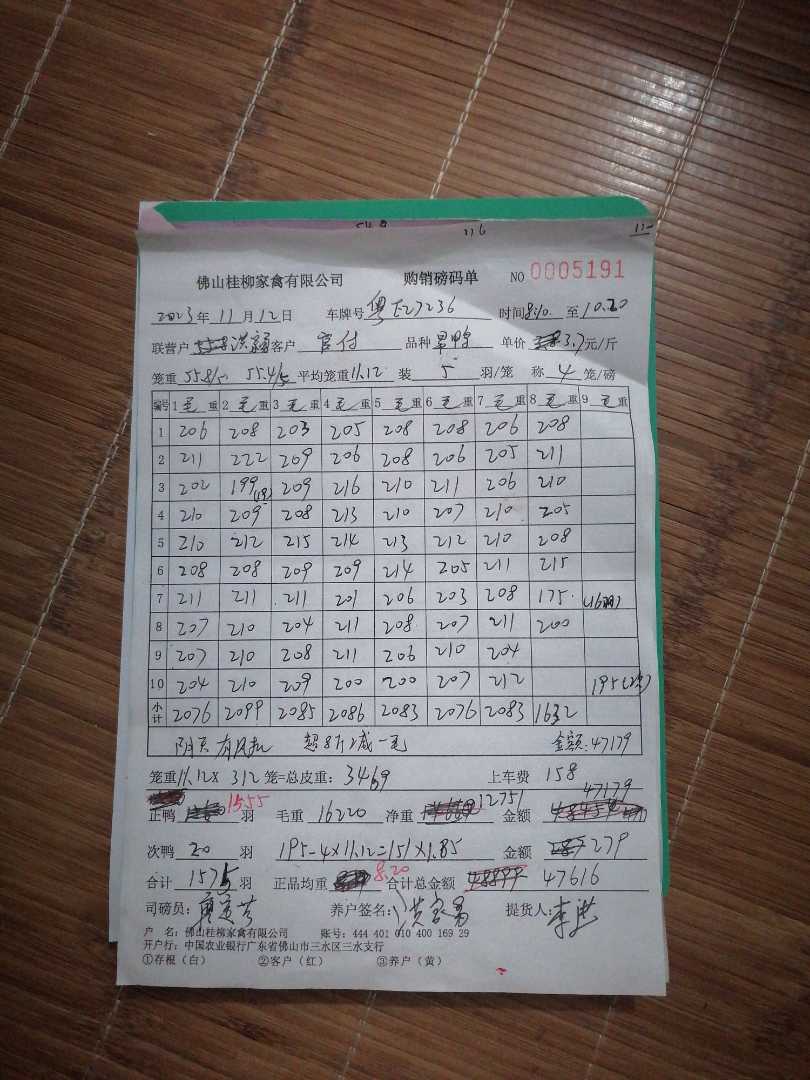 116
佛山桂柳家禽有限公司 购销磅码单 NO 0005191
2023年 11月 12日 车牌号 粤E27236 时间 8:10 至 10:20
联营户 洪 客户 官付 品种 旱鸭 单价 3.7元/斤
笼重 55.8/5 55.4/5 平均笼重 11.12 装 5 羽/笼 称 4 笼/磅
编号 1 毛重 2 毛重 3 毛重 4 毛重 5 毛重 6 毛重 7 毛重 8 毛重 9 毛重
1 206 208 203 205 208 208 206 208
2 211 222 209 206 208 206 205 211
3 202 199 209 216 210 211 206 210
4 210 209 208 213 210 207 210 205
5 210 212 215 214 213 212 210 208
6 208 208 209 209 214 205 211 215
7 211 211 211 201 206 203 208 175 (16羽)
8 207 210 204 211 208 207 211 200
9 207 210 208 211 206 210 204
10 204 210 209 200 200 207 212 195(次)
小计 2076 2099 2085 2086 2083 2076 2083 1632
阴天 有风扣 超8斤减一毛 金额:47179
笼重 11.12 × 312 笼=总皮重: 3469 上车费 158
正鸭 1555 羽 毛重 16220 净重 12751 金额 47179
次鸭 20 羽 195-4×11.12=151×1.85 金额 279
合计 1575 羽 正品均重 8.20 合计总金额 47616
司磅员: 养户签名: 提货人:
户 名:佛山桂柳家禽有限公司 账号:444 401 010 400 169 29
开户行:中国农业银行广东省佛山市三水区三水支行
①存根(白) ②客户(红) ③养户(黄)